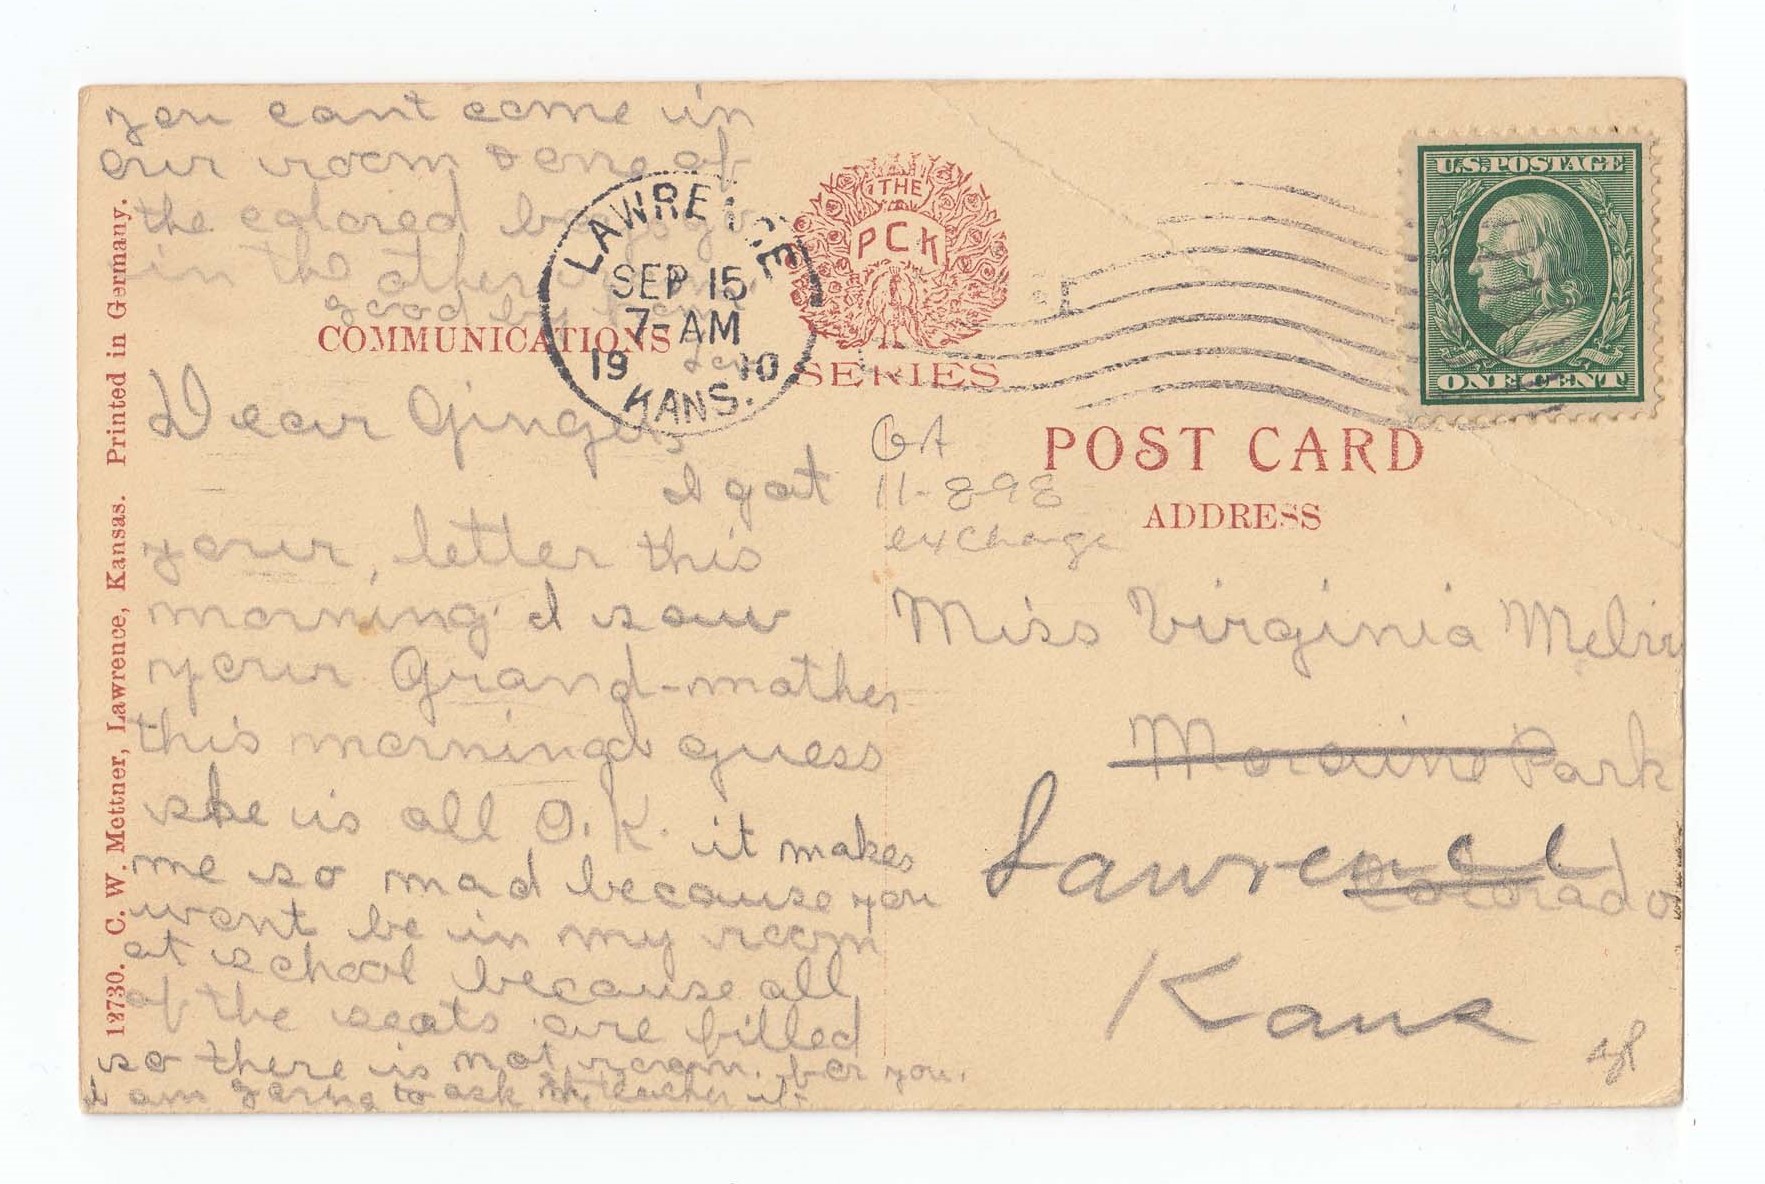 you cant come in
our room & one of
the colored boys go
in the other
good by from
COMMUNICATIONS
Dear Ginger,
I got
your, letter this
morning. I saw
your Grand-mother
this morning guess
she is all O.K. it makes
me so mad because you
wont be in my room
at school because all
of the seats are filled
so there is not room. for you.
I am going to ask the teacher if
12730. C. W. Mettner, Lawrence, Kansas. Printed in Germany.
LAWRENCE
SEP 15
7-AM
1910
KANS.
THE
PCK
SERIES
U.S. POSTAGE
ONE CENT
GA
11-8-98
exchange
POST CARD
ADDRESS
Miss Virginia
Moraine Park
Lawrence
Colorado
Kans